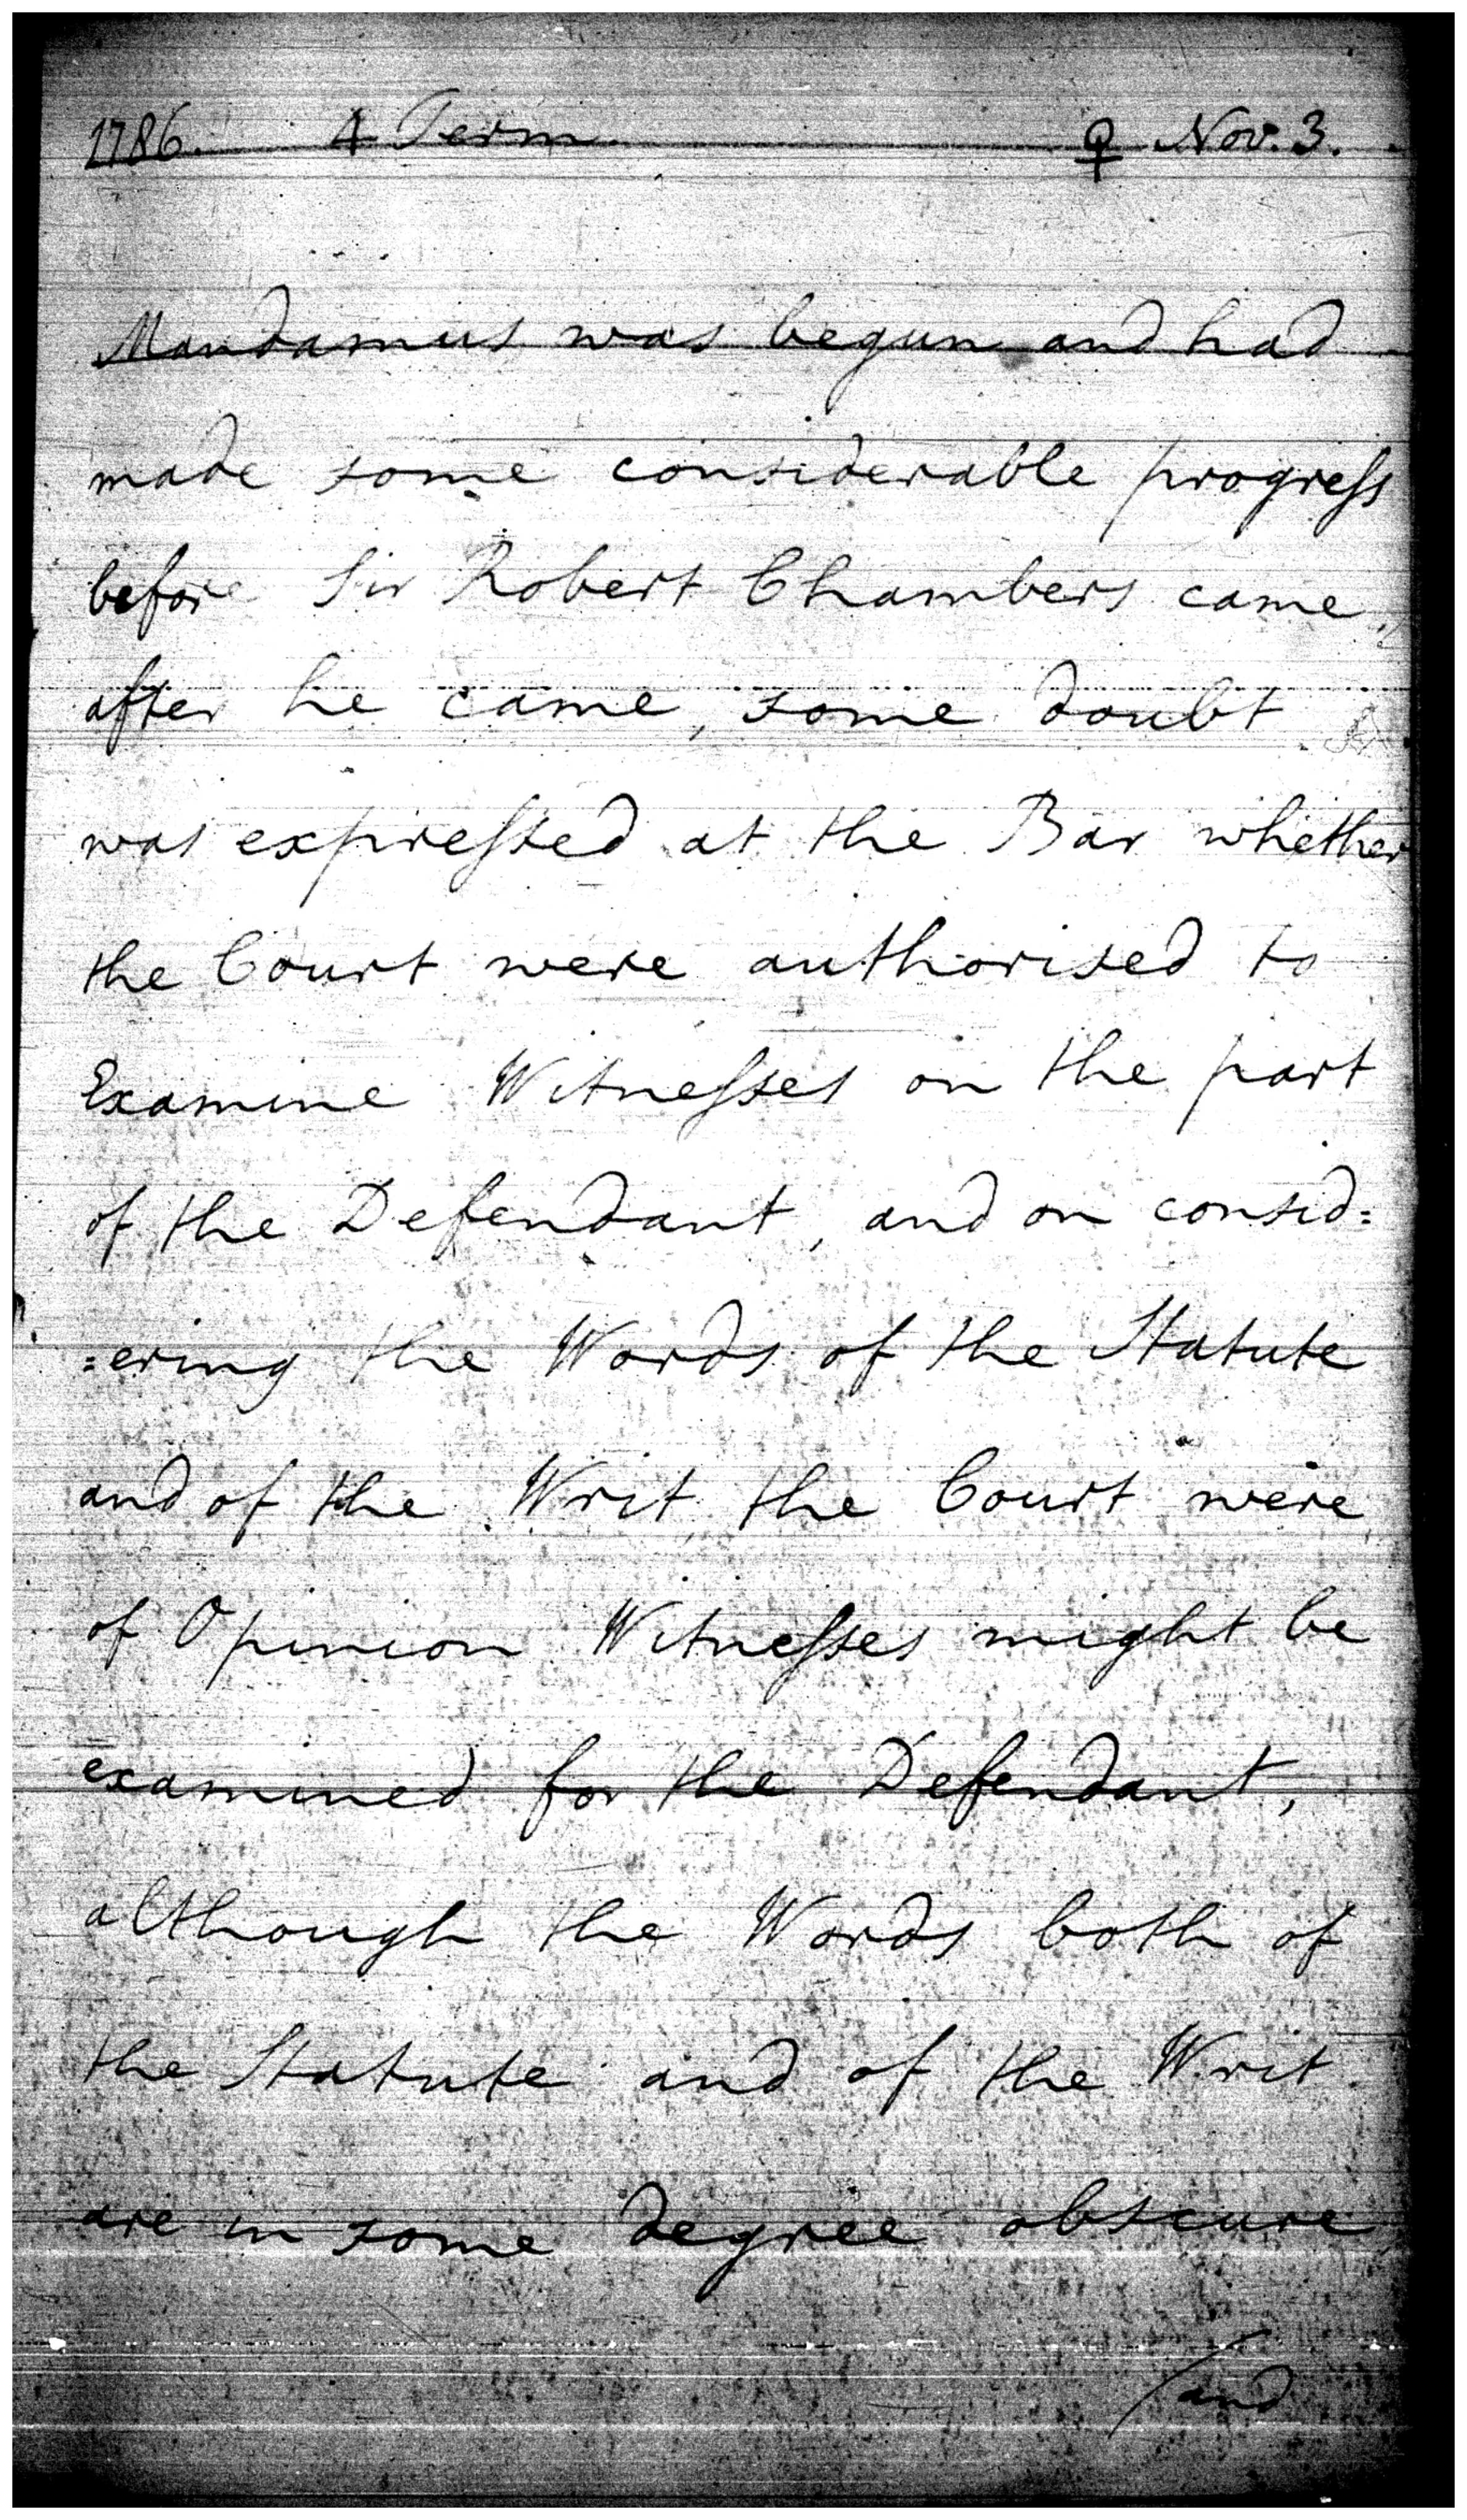 1786. 4 Term. ♀ Nov. 3.
Mandamus was begun and had
made some considerable progress
before Sir Robert Chambers came
after he came, some doubt
was expressed at the Bar whether
the Court were authorised to
Examine Witnesses on the part
of the Defendant, and on consid=
=ering the Words of the Statute
and of the Writ the Court were
of Opinion Witnesses might be
examined for the Defendant,
although the Words both of
the Statute and of the Writ
are in some degree obscure
/and